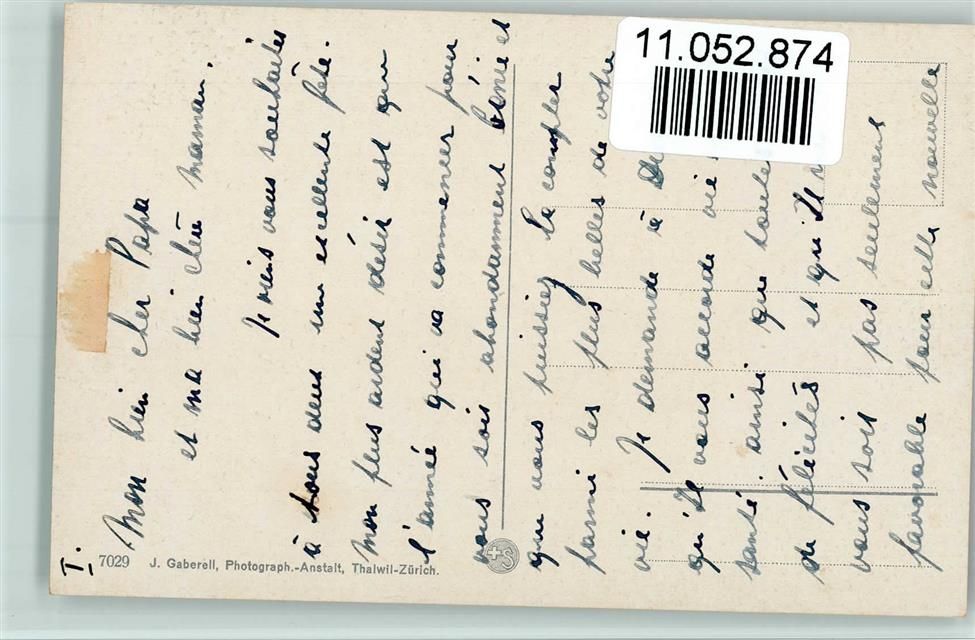 11.052.874
I.
Mon bien cher Papa
et ma bien chère maman,
Je viens vous souhaiter
à tous deux une excellente fête.
Mon plus ardent désir est que
l'année qui va commencer pour
vous soit abondamment bénie et
que vous puissiez la compter
parmi les plus belles de votre
vie. Je demande à
qu'Il vous accorde vie
santé ainsi que toute
de félicités et qu'Il
vous soit pas seulement
favorable pour cette nouvelle
7029 J. Gaberell, Photograph.-Anstalt, Thalwil-Zürich.